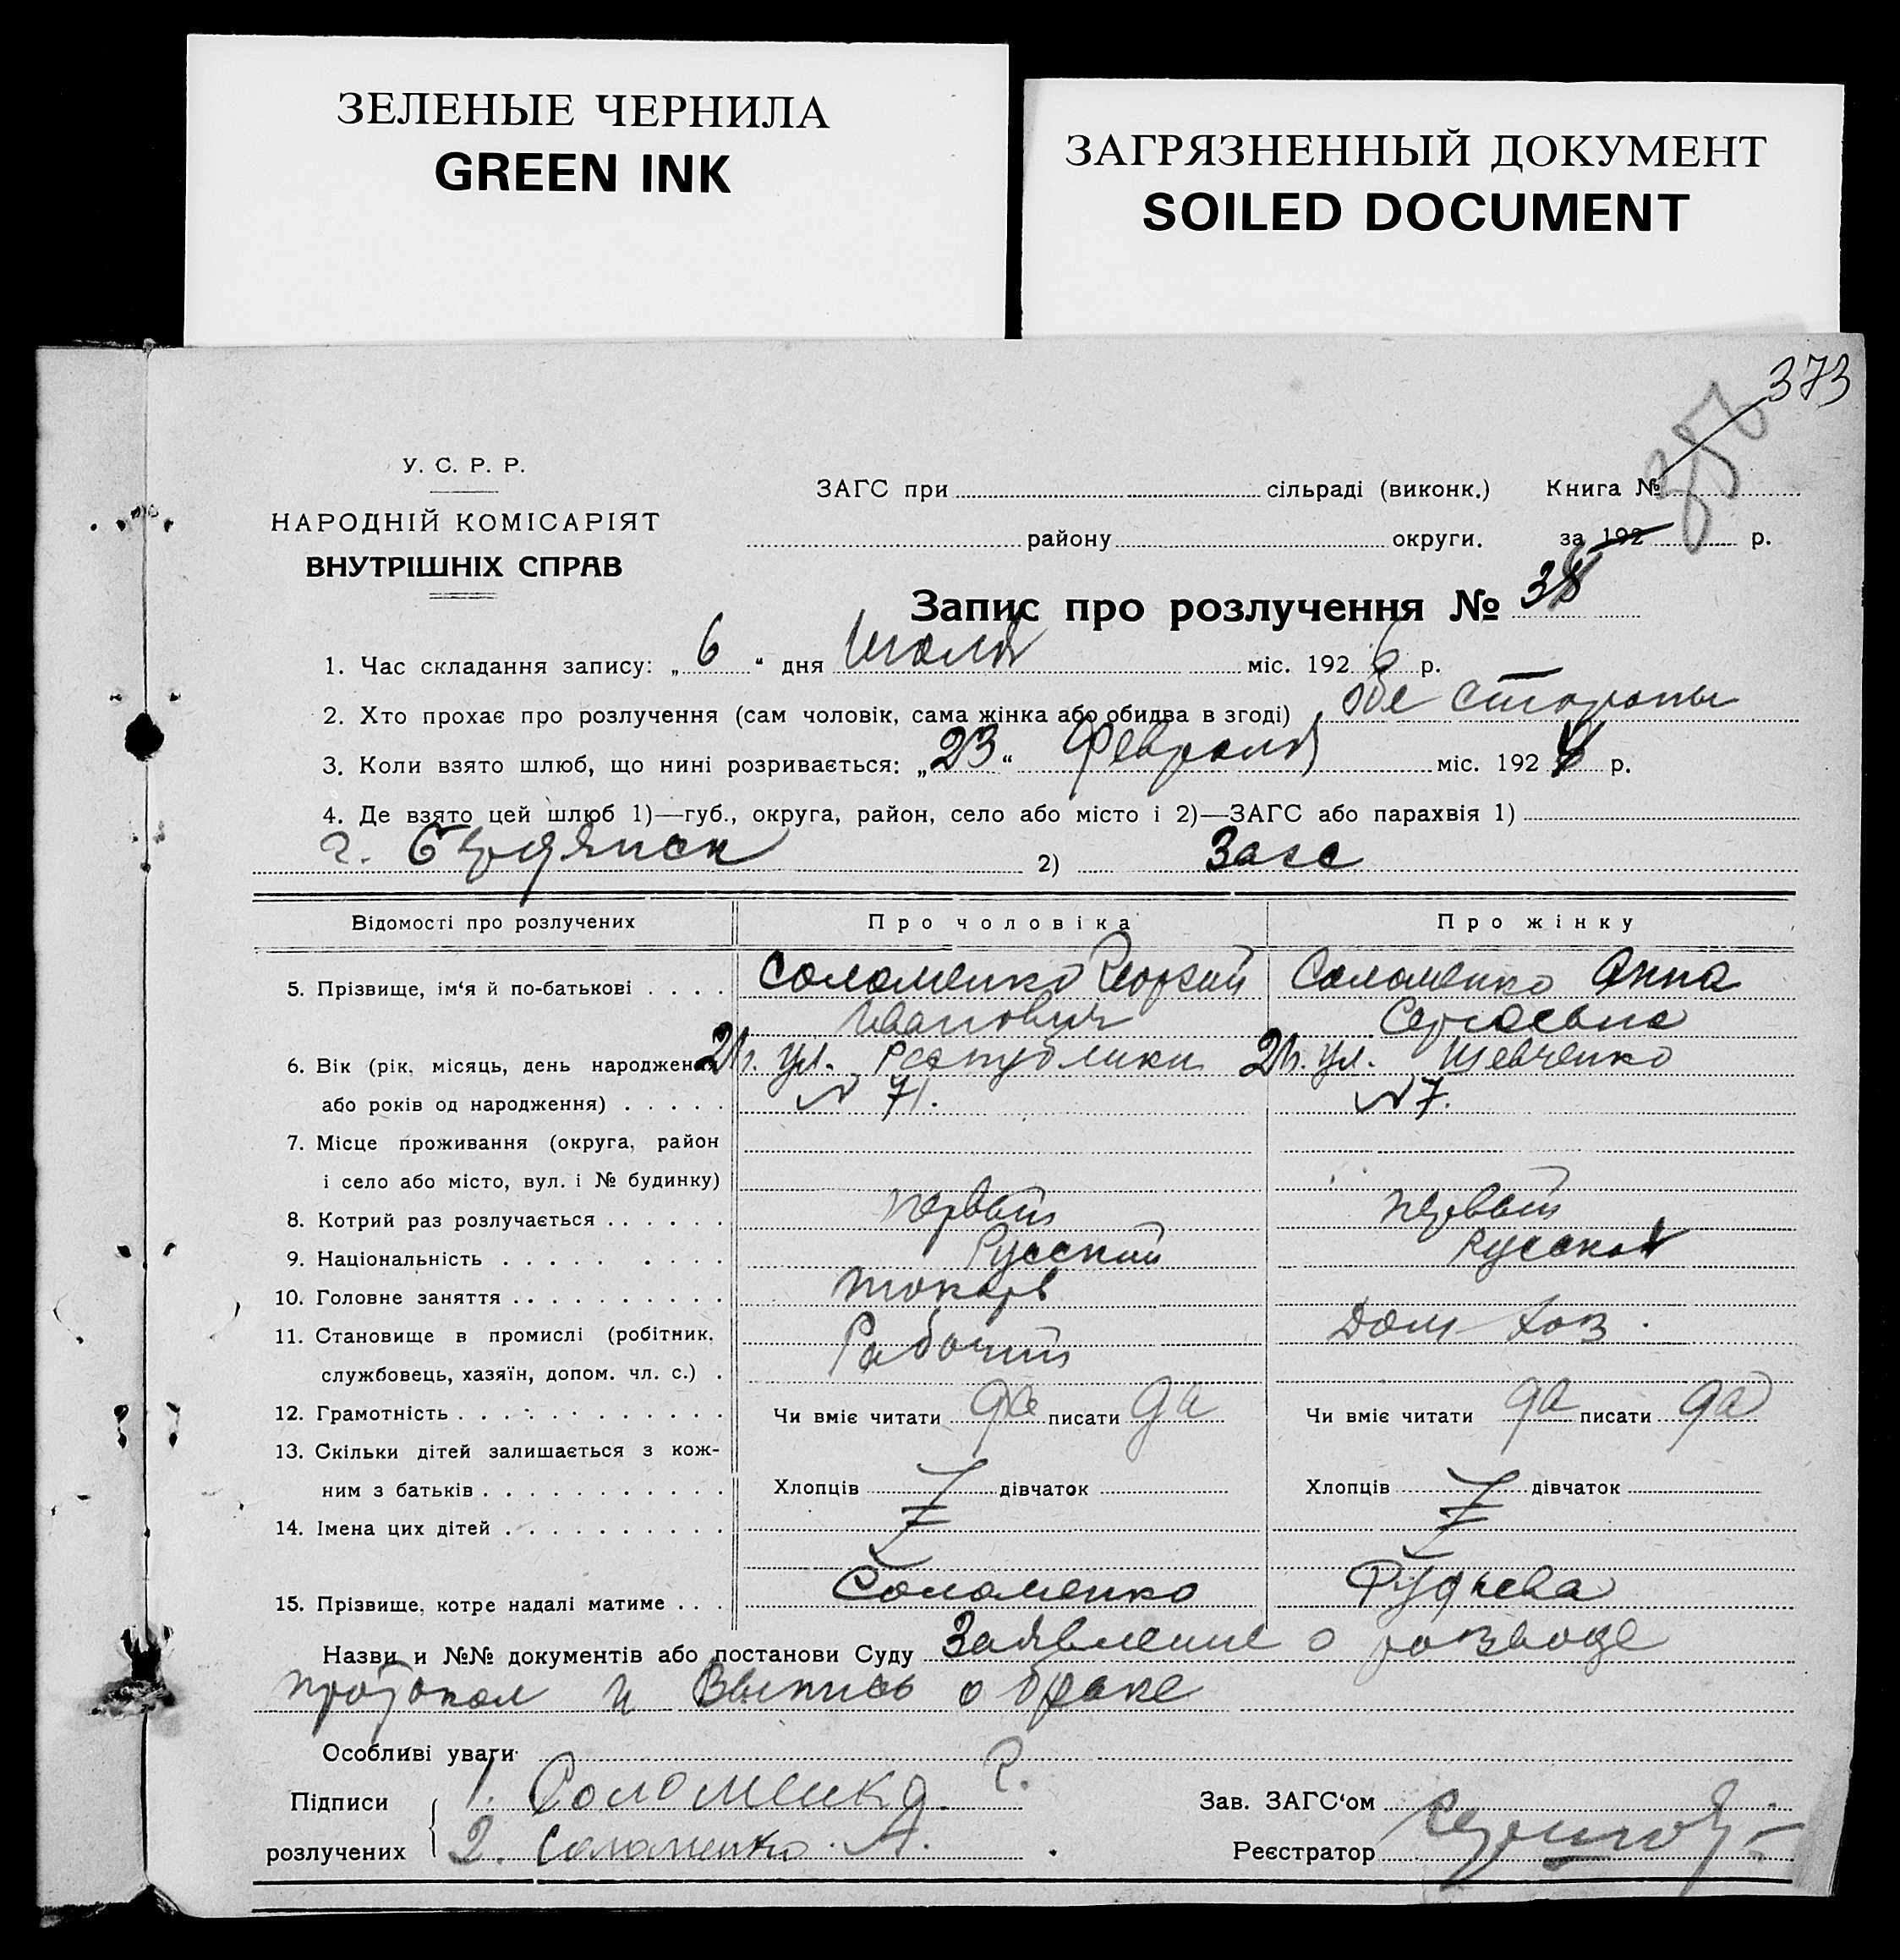 ЗЕЛЕНЫЕ ЧЕРНИЛА
GREEN INK
ЗАГРЯЗНЕННЫЙ ДОКУМЕНТ
SOILED DOCUMENT
373
У. С. Р. Р.
НАРОДНІЙ КОМІСАРІЯТ
ВНУТРІШНІХ СПРАВ
ЗАГС при сільраді (виконк.) Книга №
району округи. за 192 р.
Запис про розлучення № 38
1. Час складання запису: „ 6 “ дня Июля міс. 192 6 р.
2. Хто прохає про розлучення (сам чоловік, сама жінка або обидва в згоді) обе стороны
3. Коли взято шлюб, що нині розривається: „ 23 “ Февраля міс. 192 р.
4. Де взято цей шлюб 1)—губ., округа, район, село або місто і 2)—ЗАГС або парахвія 1)
г. Бердянск 2) Загс
Відомості про розлучених Про чоловіка Про жінку
5. Прізвище, ім‘я й по-батькові . . . . Соломенко Георгий Соломенко Анна
Иванович Сергеевна
6. Вік (рік, місяць, день народження ул. Республики ул. Шевченко
або років од народження) . . . . . № 71. № 7.
7. Місце проживання (округа, район
і село або місто, вул. і № будинку)
8. Котрий раз розлучається . . . . . . первый первый
9. Національність . . . . . . . . . Русский Русская
10. Головне заняття . . . . . . . . . . токарь
11. Становище в промислі (робітник, Рабочий Дом хоз.
службовець, хазяїн, допом. чл. с.) .
12. Грамотність . . . . . . . . . . . . Чи вміє читати да писати да Чи вміє читати да писати да
13. Скільки дітей залишається з кож-
ним з батьків . . . . . . . . . . . Хлопців дівчаток Хлопців дівчаток
14. Імена цих дітей . . . . . . . . . .
15. Прізвище, котре надалі матиме . . . Соломенко Руднева
Назви и №№ документів або постанови Суду Заявление о разводе
протокол и Выпись о браке
Особливі уваги
Підписи 1. Соломенко. Г. Зав. ЗАГС‘ом
розлучених 2. Соломенко. А. Реєстратор